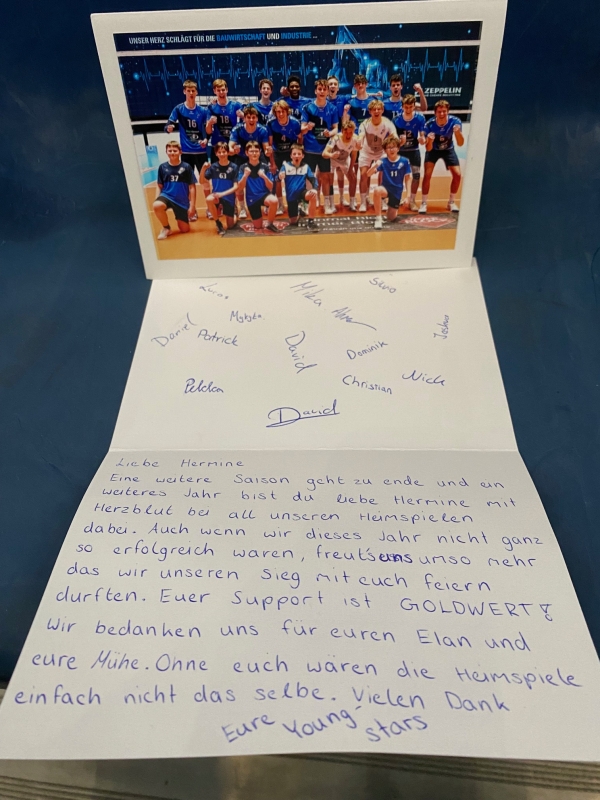 UNSER HERZ SCHLÄGT FÜR DIE BAUWIRTSCHAFT UND INDUSTRIE ...
ZEPPELIN
16
18
37
61
4
11
Lucas
Mika
Daniel
Patrick
David
Dominik
Joshua
Pekka
Christian
Nick
David
Liebe Hermine
Eine weitere Saison geht zu ende und ein
weiteres Jahr bist du liebe Hermine mit
Herzblut bei all unseren Heimspielen
dabei. Auch wenn wir dieses Jahr nicht ganz
so erfolgreich waren, freut's uns umso mehr
das wir unseren Sieg mit euch feiern
durften. Euer Support ist GOLDWERT!
Wir bedanken uns für euren Elan und
eure Mühe. Ohne euch wären die Heimspiele
einfach nicht das selbe. Vielen Dank
Eure Young-stars